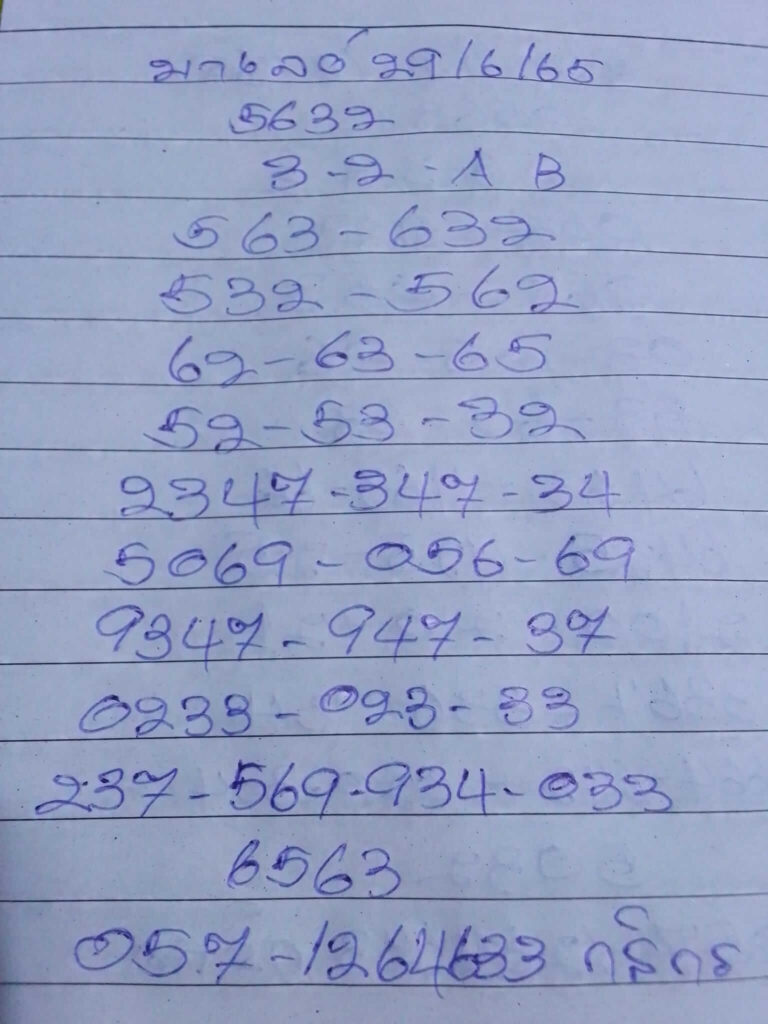 มาเลย์ 29/6/65
5632
3-2-A B
563-632
532-562
62-63-65
52-53-32
2347-347-34
5069-056-69
9347-947-37
0233-023-33
237-569-934-033
6563
057-1264633